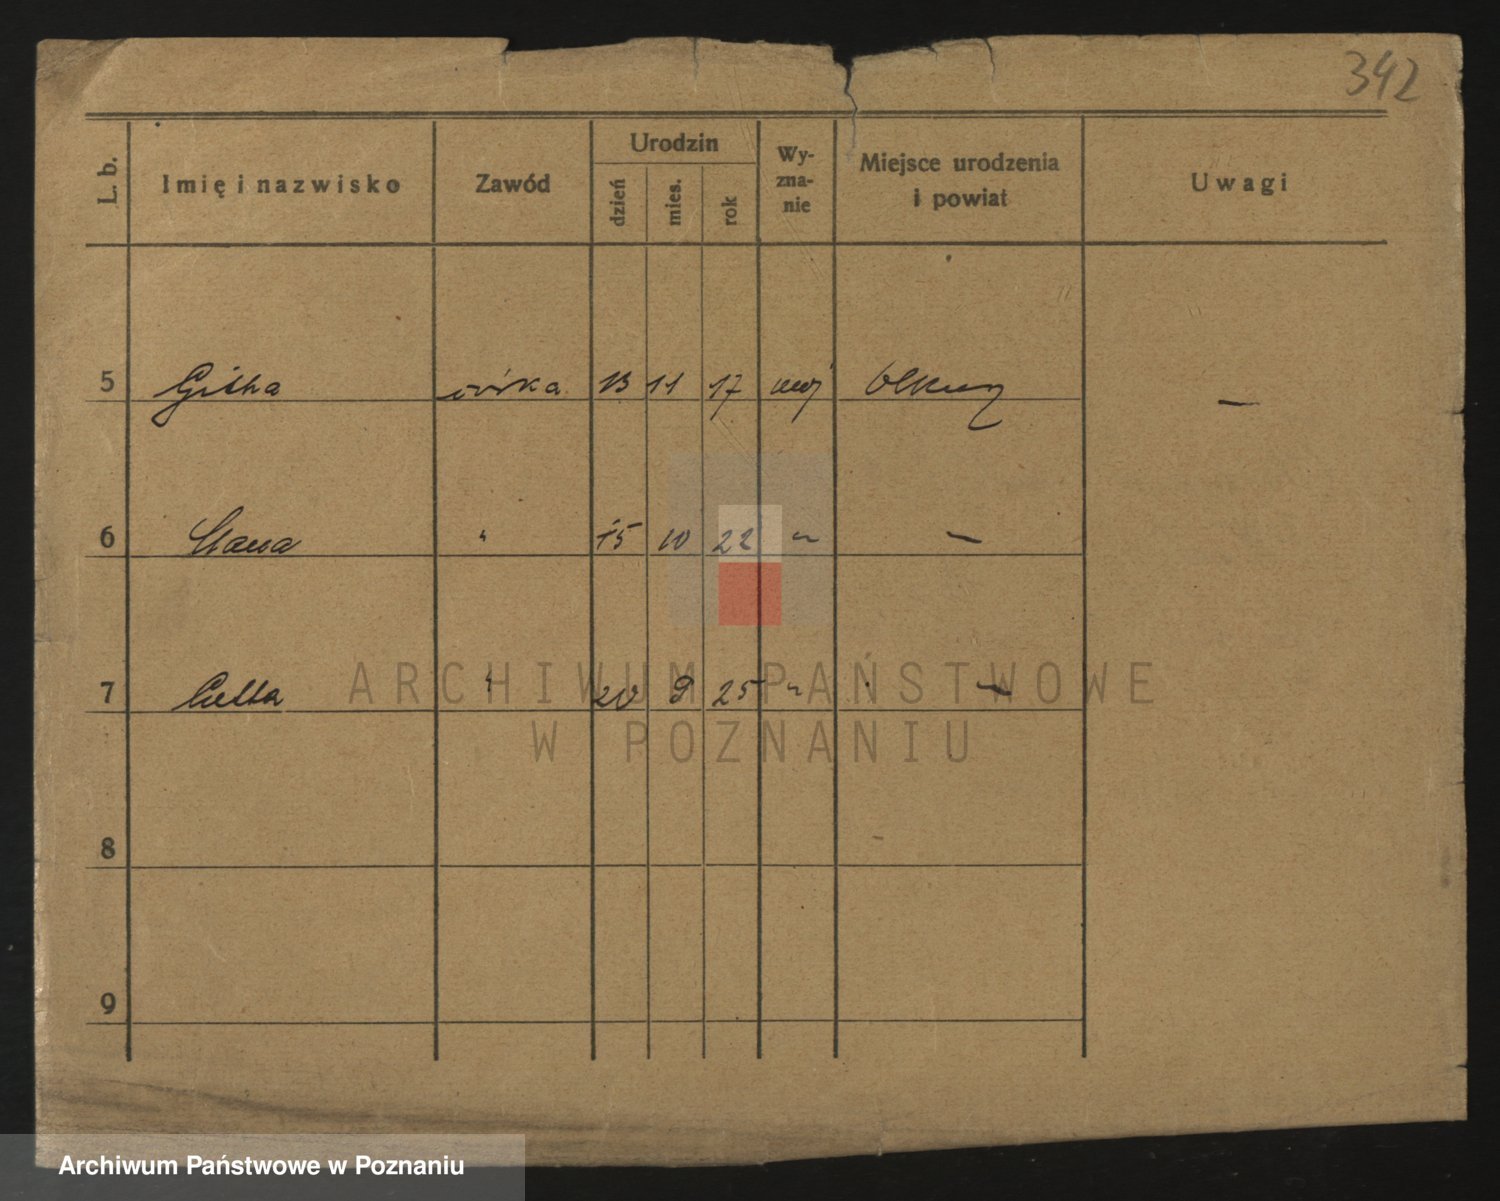 342
L. b. Imię i nazwisko Zawód Urodzin dzień mies. rok Wy-zna-nie Miejsce urodzenia i powiat Uwagi
5 Githa córka 13 11 17 Olkusz —
6 " 15 10 22 " —
7 " 20 9 25 " —
8
9
ARCHIWUM PAŃSTWOWE
W POZNANIU
Archiwum Państwowe w Poznaniu